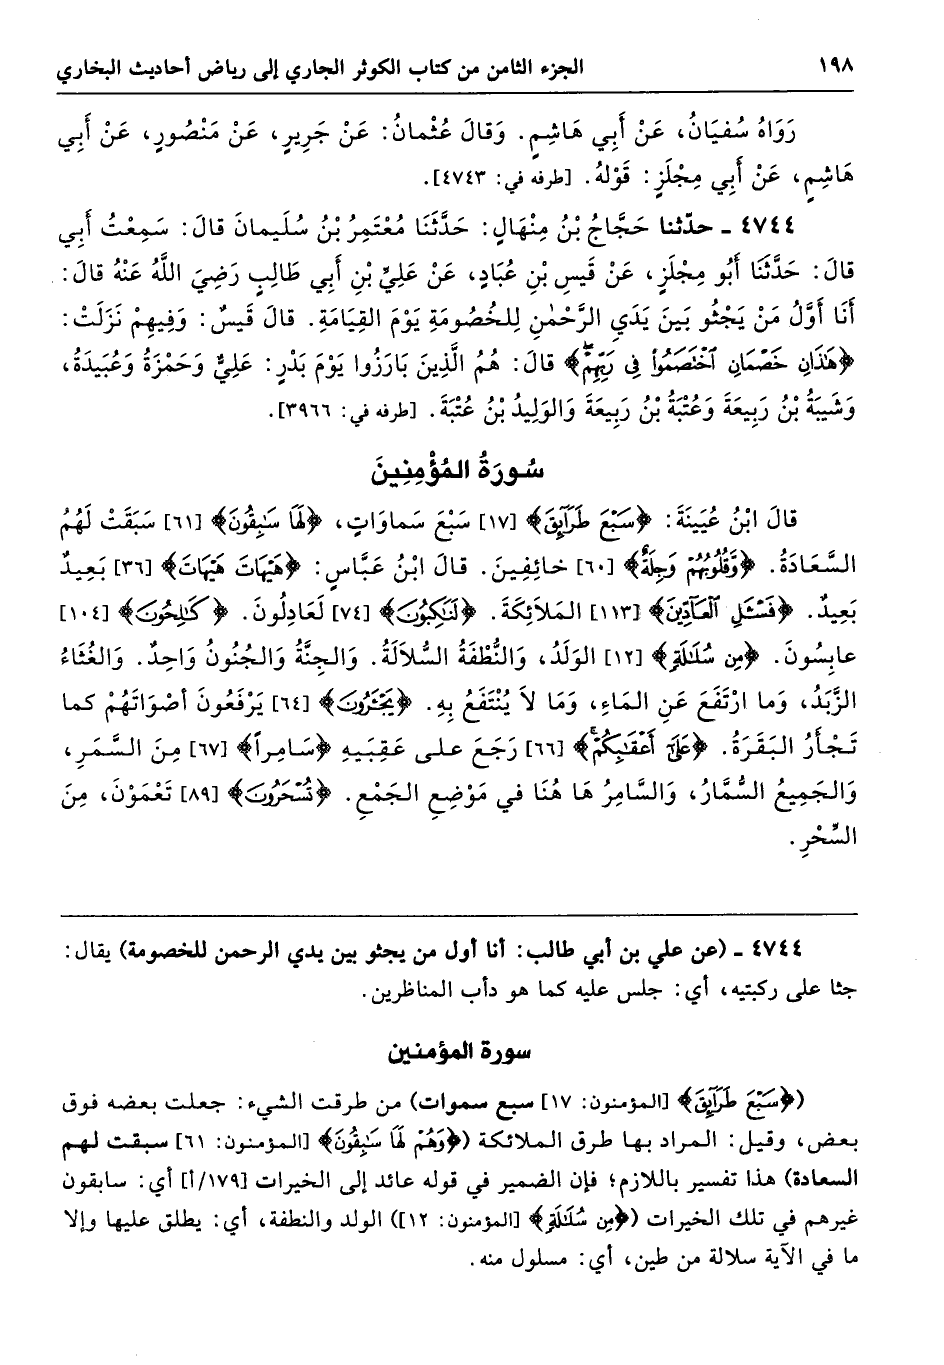 ١٩٨ الجزء الثامن من كتاب الكوثر الجاري إلى رياض أحاديث البخاري
رَوَاهُ سُفيَانُ، عَنْ أَبِي هَاشِمٍ. وَقالَ عُثْمانُ: عَنْ جَرِيرٍ، عَنْ مَنْصُورٍ، عَنْ أَبِي
هَاشِمٍ، عَنْ أَبِي مِجْلَزٍ: قَوْلهُ. [طرفه في: ٤٧٤٣].
٤٧٤٤ ـ حدّثنا حَجَّاجُ بْنُ مِنْهَالٍ: حَدَّثَنَا مُعْتَمِرُ بْنُ سُلَيمانَ قالَ: سَمِعْتُ أَبِي
قالَ: حَدَّثَنَا أَبُو مِجْلَزٍ، عَنْ قَيسِ بْنِ عُبَادٍ، عَنْ عَلِيِّ بْنِ أَبِي طَالِبٍ رَضِيَ اللَّهُ عَنْهُ قالَ:
أَنَا أَوَّلُ مَنْ يَجْثُو بَينَ يَدَيِ الرَّحْمٰنِ لِلخُصُومَةِ يَوْمَ القِيَامَةِ. قالَ قَيسٌ: وَفِيهِمْ نَزَلَتْ:
﴿هَٰذَانِ خَصْمَانِ ٱخْتَصَمُوا۟ فِى رَبِّهِمْ﴾ قالَ: هُمُ الَّذِينَ بَارَزُوا يَوْمَ بَدْرٍ: عَلِيٌّ وَحَمْزَةُ وَعُبَيدَةُ،
وَشَيبَةُ بْنُ رَبِيعَةَ وَعُتْبَةُ بْنُ رَبِيعَةَ وَالوَلِيدُ بْنُ عُتْبَةَ. [طرفه في: ٣٩٦٦].
سُورَةُ المُؤْمِنِينَ
قالَ ابْنُ عُيَينَةَ: ﴿سَبْعَ طَرَآئِقَ﴾ [١٧] سَبْعَ سَماوَاتٍ، ﴿لَهَا سَٰبِقُونَ﴾ [٦١] سَبَقَتْ لَهُمُ
السَّعَادَةُ. ﴿وَقُلُوبُهُمْ وَجِلَةٌ﴾ [٦٠] خائِفِينَ. قالَ ابْنُ عَبَّاسٍ: ﴿هَيْهَاتَ هَيْهَاتَ﴾ [٣٦] بَعِيدٌ
بَعِيدٌ. ﴿فَسْـَٔلِ ٱلْعَآدِّينَ﴾ [١١٣] المَلاَئِكَةَ. ﴿لَنَٰكِبُونَ﴾ [٧٤] لَعَادِلُونَ. ﴿كَٰلِحُونَ﴾ [١٠٤]
عابِسُونَ. ﴿مِن سُلَٰلَةٍ﴾ [١٢] الوَلَدُ، وَالنُّطْفَةُ السُّلاَلَةُ. وَالجِنَّةُ وَالجُنُونُ وَاحِدٌ. وَالغُثَاءُ
الزَّبَدُ، وَما ارْتَفَعَ عَنِ المَاءِ، وَمَا لاَ يُنْتَفَعُ بِهِ. ﴿يَجْـَٔرُونَ﴾ [٦٤] يَرْفَعُونَ أَصْوَاتَهُمْ كما
تَجْأَرُ البَقَرَةُ. ﴿عَلَىٰٓ أَعْقَٰبِكُمْ﴾ [٦٦] رَجَعَ على عَقِبَيهِ ﴿سَامِراً﴾ [٦٧] مِنَ السَّمَرِ،
وَالجَمِيعُ السُّمَّارُ، وَالسَّامِرُ هَا هُنَا في مَوْضِعِ الجَمْعِ. ﴿تُسْحَرُونَ﴾ [٨٩] تَعْمَوْنَ، مِنَ
السِّحْرِ.
٤٧٤٤ ـ (عن علي بن أبي طالب: أنا أول من يجثو بين يدي الرحمن للخصومة) يقال:
جثا على ركبتيه، أي: جلس عليه كما هو دأب المناظرين.
سورة المؤمنين
(﴿سَبْعَ طَرَآئِقَ﴾ [المؤمنون: ١٧] سبع سموات) من طرقت الشيء: جعلت بعضه فوق
بعض، وقيل: المراد بها طرق الملائكة (﴿وَهُمْ لَهَا سَٰبِقُونَ﴾ [المؤمنون: ٦١] سبقت لهم
السعادة) هذا تفسير باللازم؛ فإن الضمير في قوله عائد إلى الخيرات [١٧٩/أ] أي: سابقون
غيرهم في تلك الخيرات (﴿مِن سُلَٰلَةٍ﴾ [المؤمنون: ١٢]) الولد والنطفة، أي: يطلق عليها وإلا
ما في الآية سلالة من طين، أي: مسلول منه.